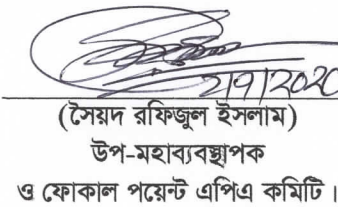 2/9/2020
(সৈয়দ রফিজুল ইসলাম)
উপ-মহাব্যবস্থাপক
ও ফোকাল পয়েন্ট এপিএ কমিটি।